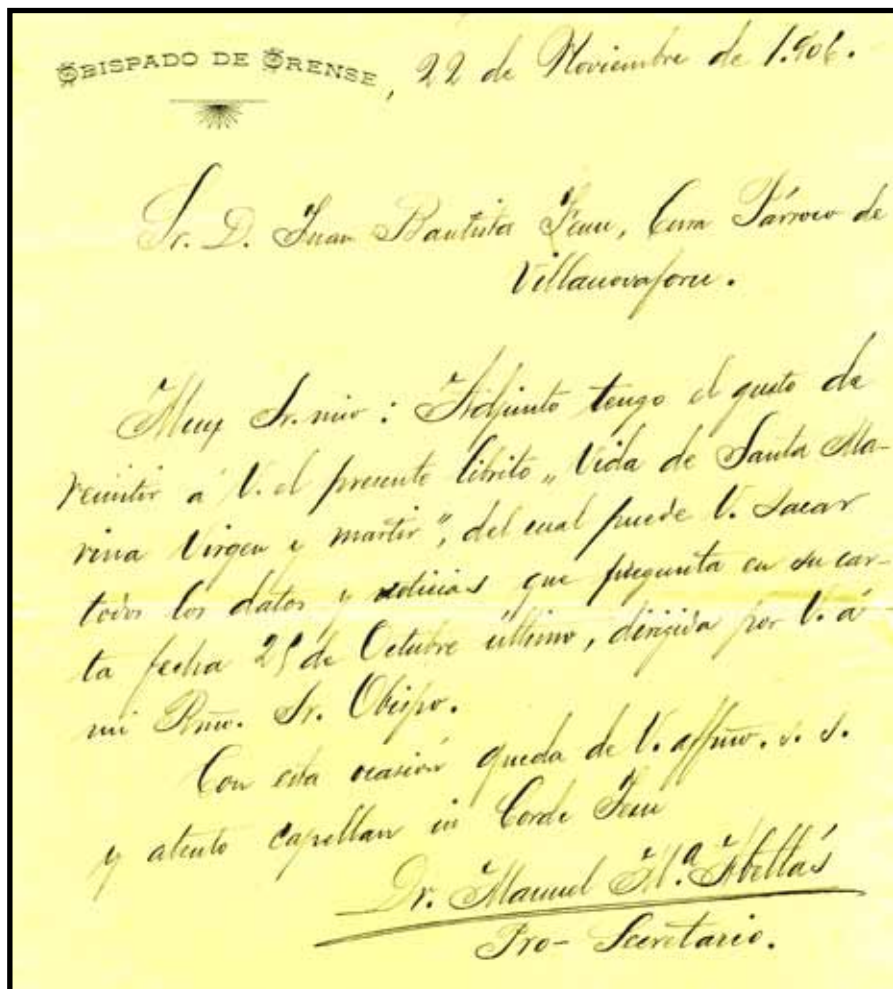 OBISPADO DE ORENSE, 22 de Noviembre de 1.906.
Sr. D. Juan Bautista Feu, Cura Párroco de
Villanovaforu.
Muy Sr. mio: Adjunto tengo el gusto de
remitir á V. el presente librito „Vida de Santa Ma-
rina Virgen y martir", del cual puede V. sacar
todos los datos y noticias que pregunta en su car-
ta fecha 25 de Octubre último, dirigida por V. á
mi Rmo. Sr. Obispo.
Con esta ocasión queda de V. affmo. s. s.
y atento capellan in Corde Jesu
Dr. Manuel Mª. Abellás
Pro-Secretario.